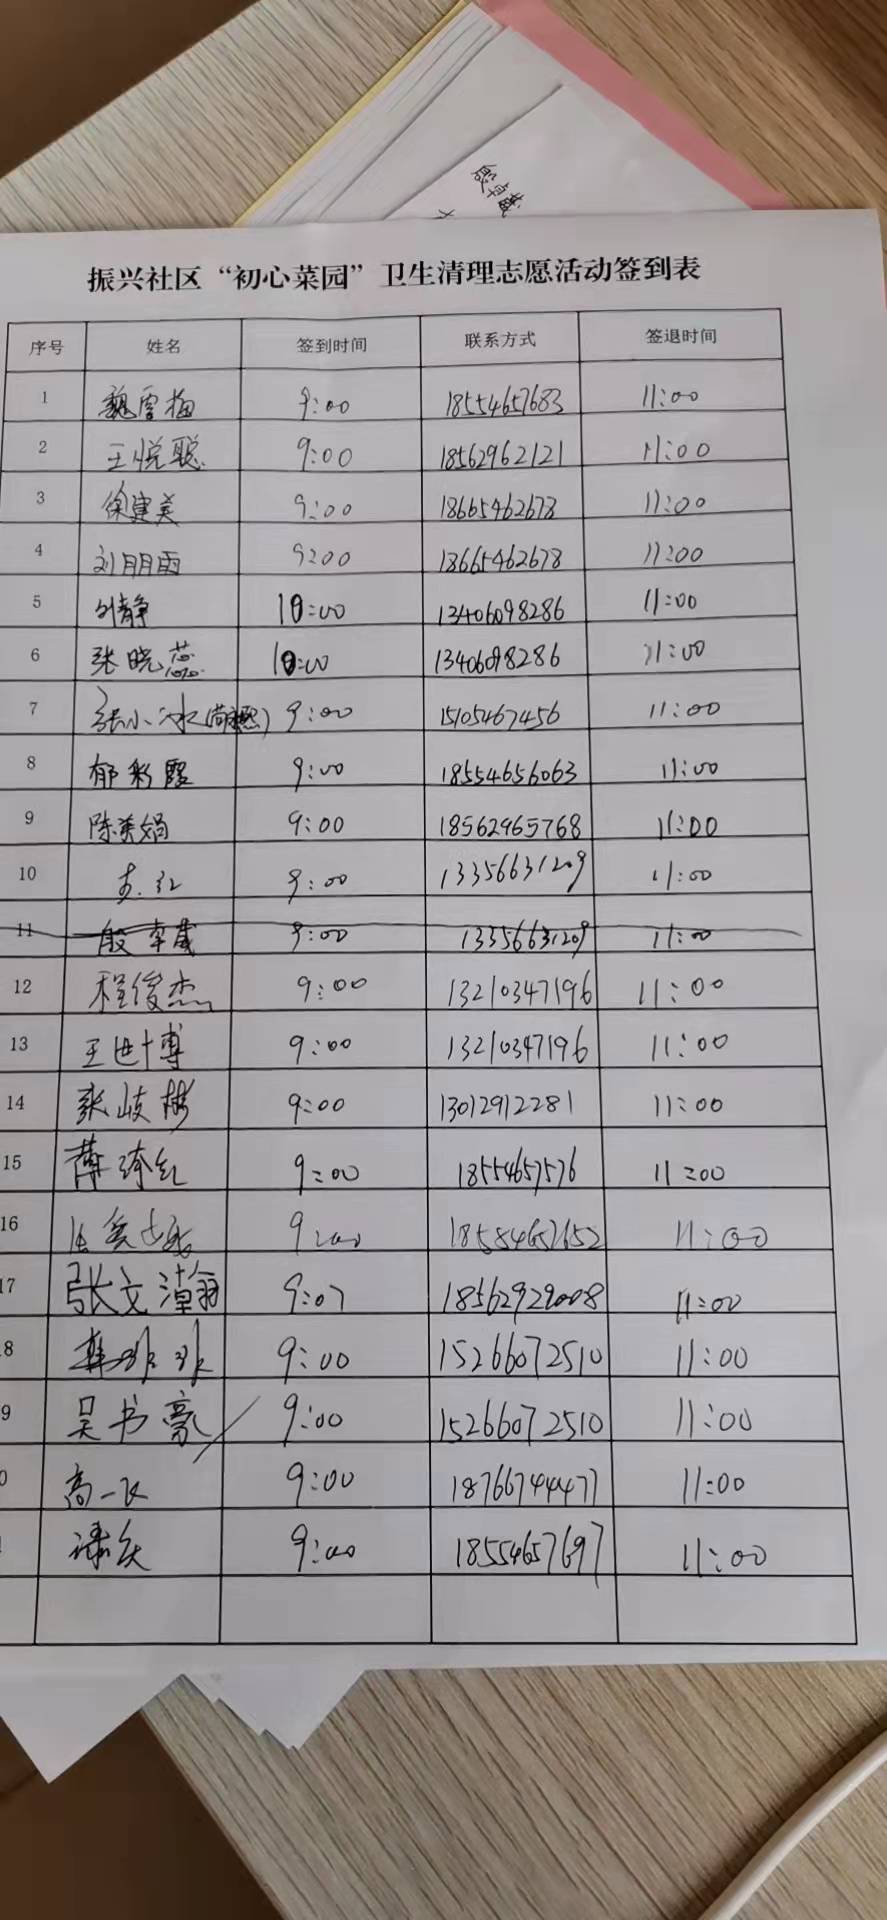 殷卓葳
振兴社区“初心菜园”卫生清理志愿活动签到表
序号 姓名 签到时间 联系方式 签退时间
1 魏雪梅 9:00 18554657683 11:00
2 王悦聪 9:00 18562962121 11:00
3 徐建美 9:00 18665462678 11:00
4 刘朋雨 9:00 18665462678 11:00
5 刘静 10:00 13406098286 11:00
6 张晓蕊 10:00 13406098286 11:00
7 张小冰 9:00 15105467456 11:00
8 郁彩霞 9:00 18554656063 11:00
9 陈美娟 9:00 18562965768 11:00
10 9:00 13356631209 11:00
11 殷卓葳 9:00 13356631209 11:00
12 程俊杰 9:00 13210347196 11:00
13 王世博 9:00 13210347196 11:00
14 张岐彬 9:00 13012912281 11:00
15 薄琦红 9:00 18554657576 11:00
16 9:00 11:00
17 张文瀚 9:07 18562929008 11:00
8 9:00 15266072510 11:00
9 吴书豪 9:00 15266072510 11:00
0 高一飞 9:00 18766744477 11:00
9:00 18554657697 11:00